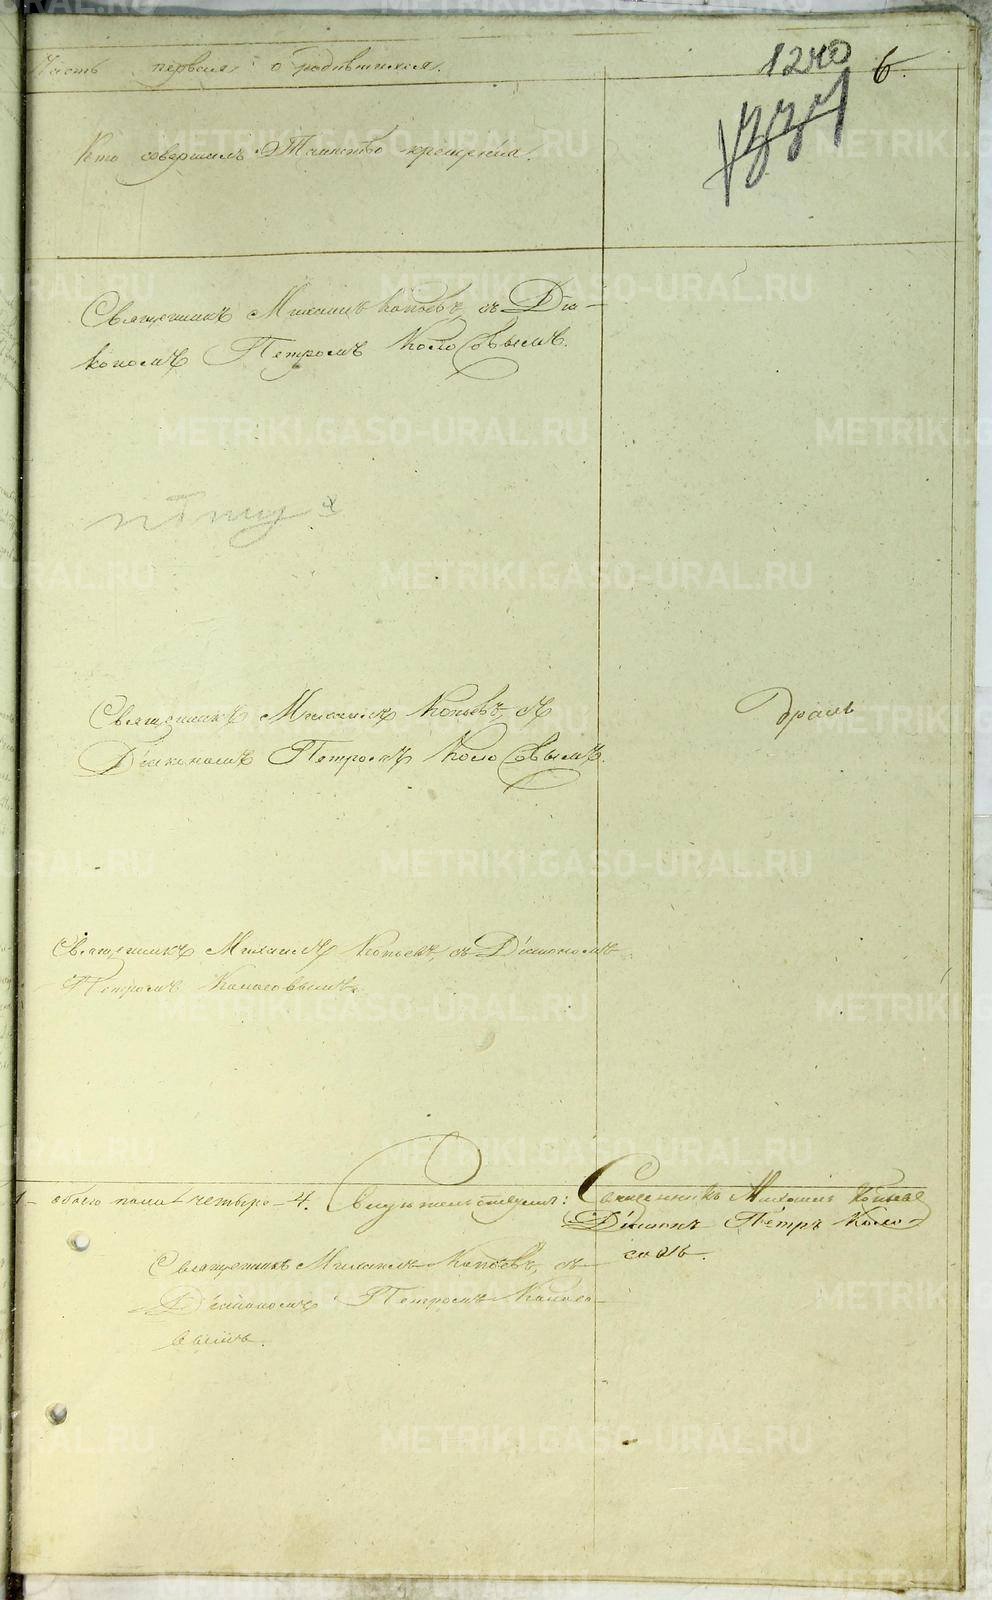 Часть первая о родившихся.
1240
6.
Кто совершилъ Таинство крещенiя.
Священникъ Михаилъ Копьевъ, съ Дiа-
кономъ Петромъ Колосовымъ.
Священникъ Михаилъ Копьевъ, съ
Дiакономъ Петромъ Колосовымъ.
Священникъ Михаилъ Копьевъ, съ Дiакономъ
Петромъ Колосовымъ.
обоего пола четыре 4. Свидѣтельствуемъ: Священникъ Михаилъ Копьевъ
Дiаконъ Петръ Коло-
совъ.
Священникъ Михаилъ Копьевъ, съ
Дiакономъ Петромъ Колосо-
вымъ.
METRIKI.GASO-URAL.RU